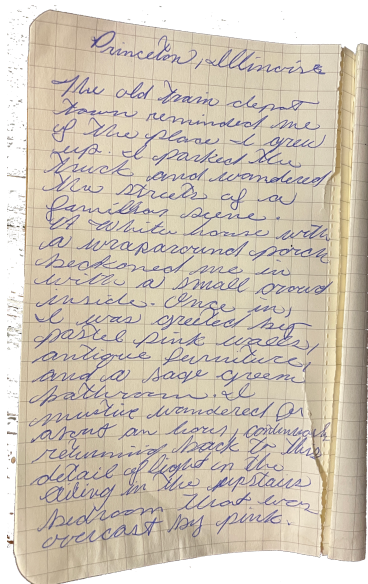 Princeton, Illinois
The old train depot
town reminded me
of the place I grew
up. I parked the
truck and wandered
the streets of a
familiar scene.
A white house with
a wraparound porch
beckoned me in
with a small crowd
inside. Once in,
I was greeted by
pastel pink walls,
antique furniture,
and a sage green
bathroom. I
wandered for
about an hour, continuously
returning back to this
detail of light in the
ceiling in the upstairs
bedroom that was
overcast by pink.